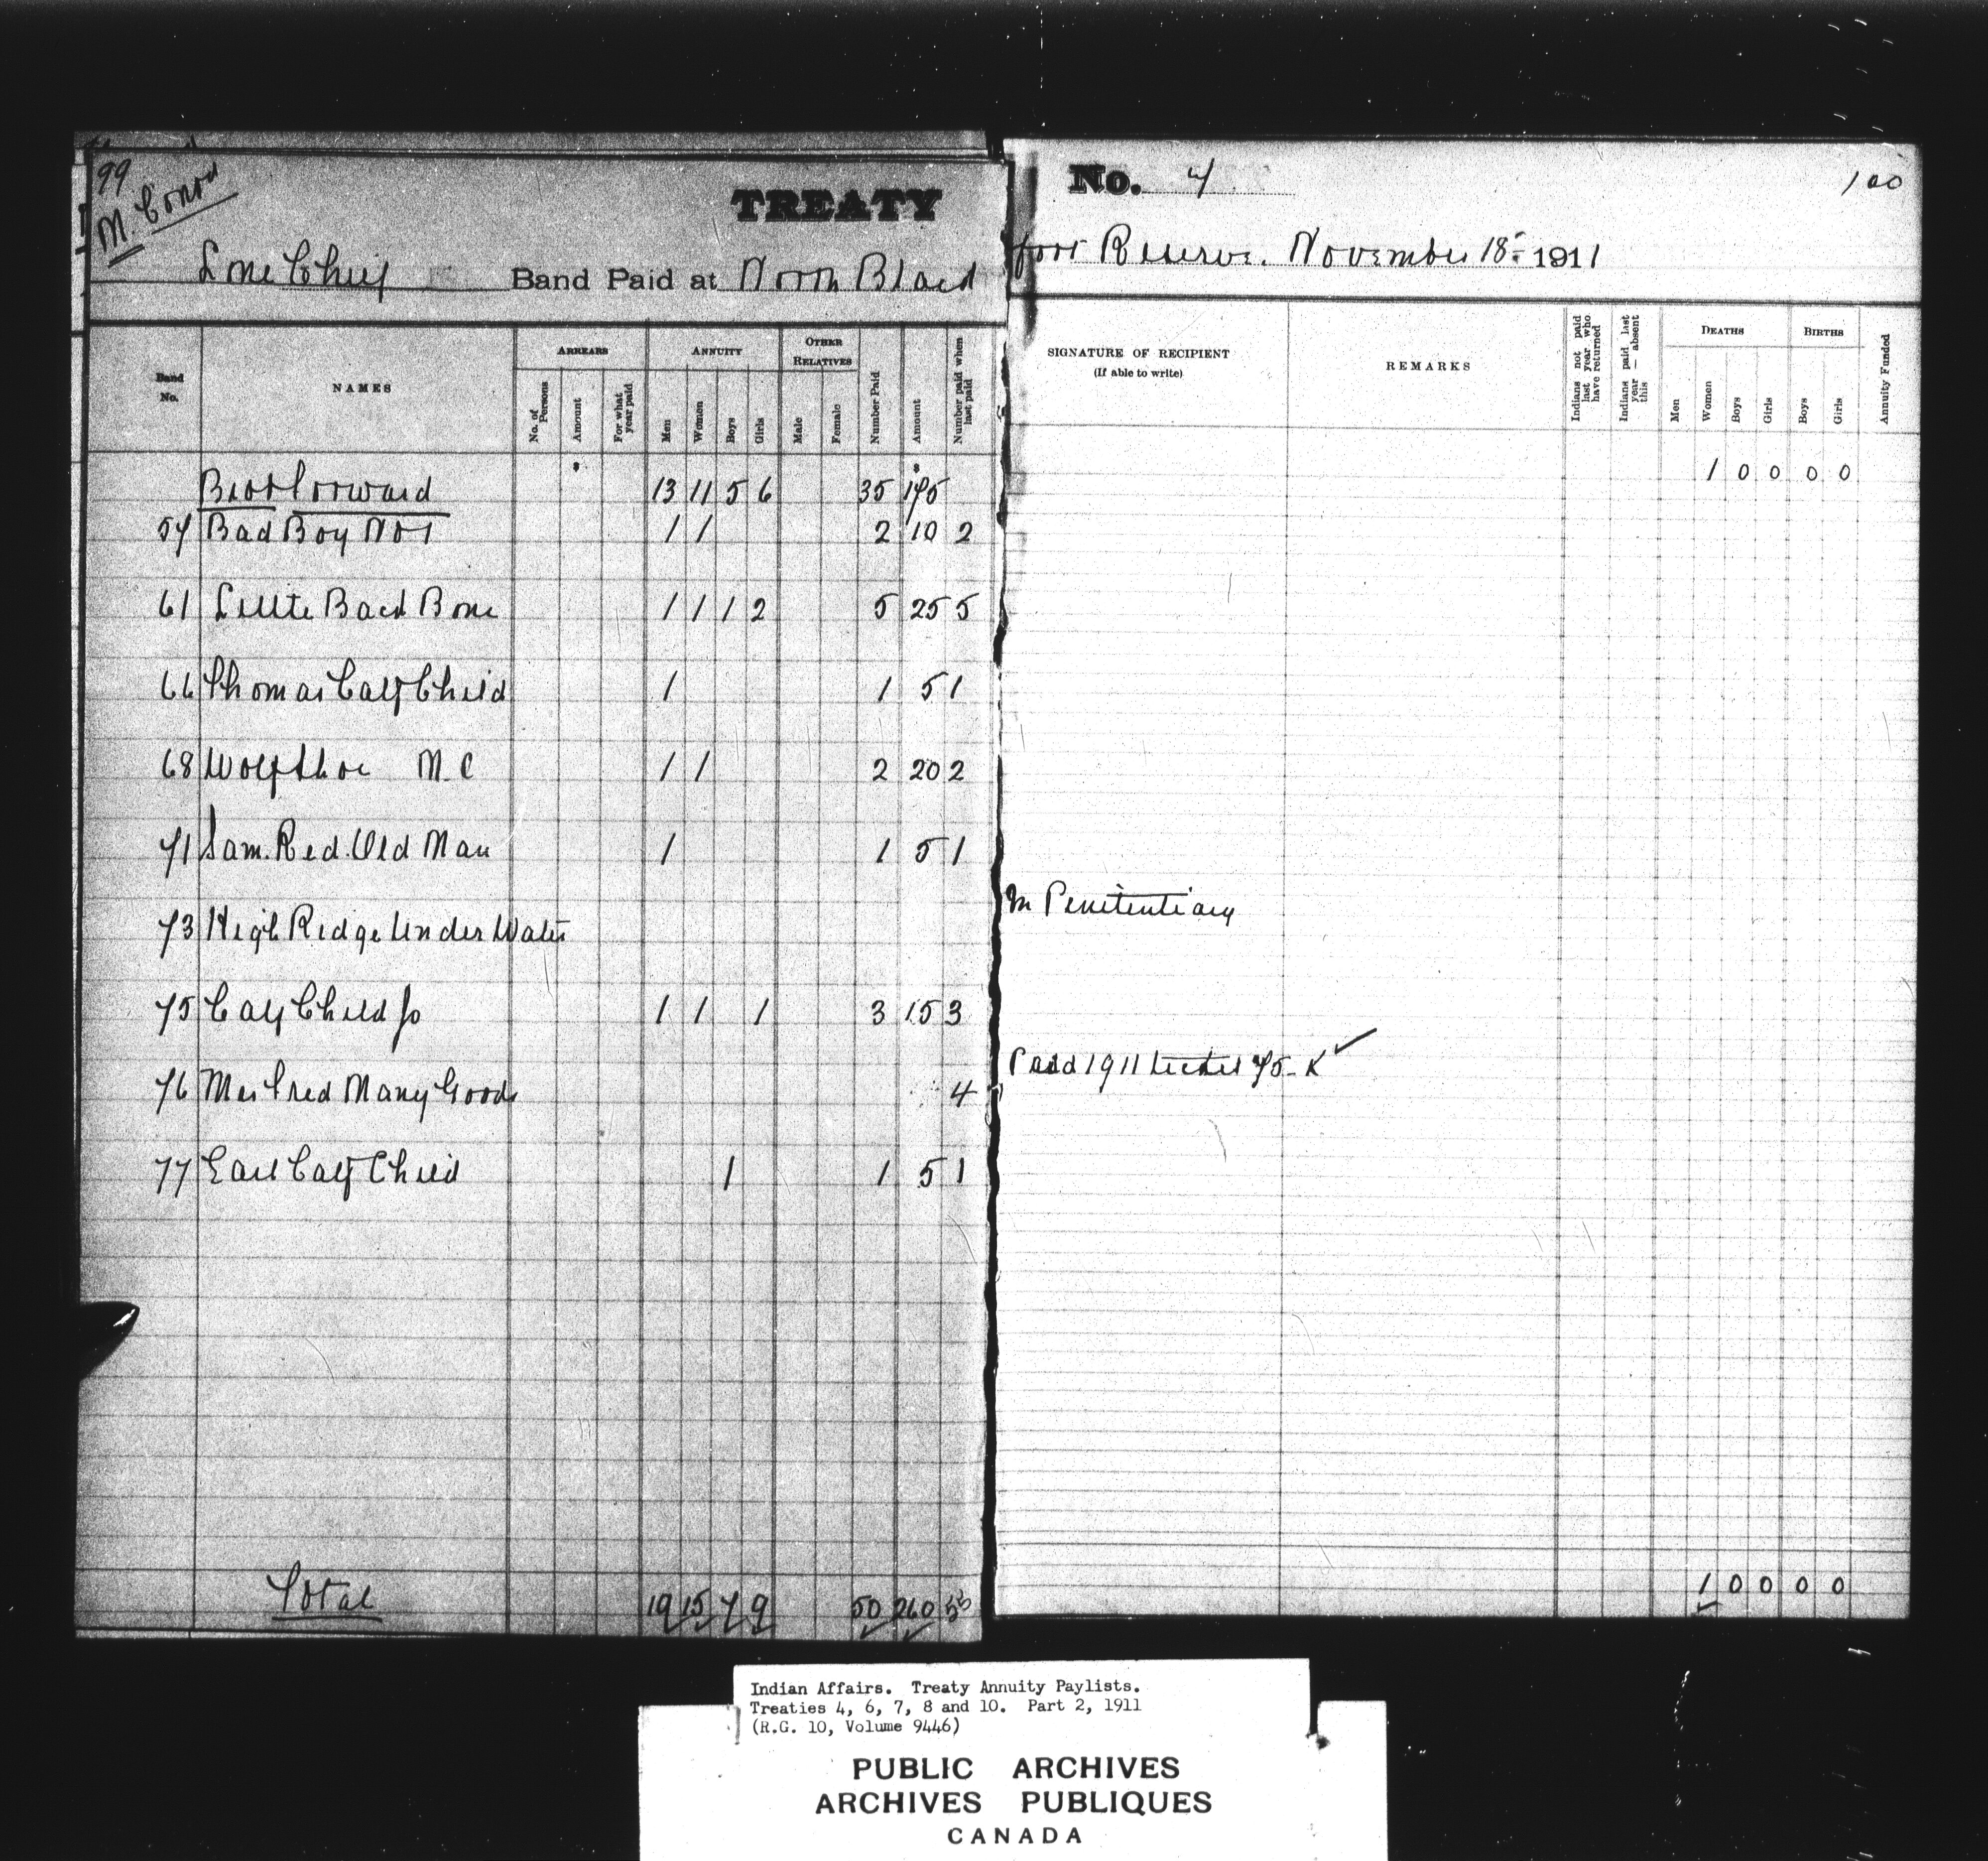 99
M. Conod
TREATY No. 7 100
Lone Chief Band Paid at North Blackfoot Reserve. November 18 1911
Band No. NAMES ARREARS ANNUITY OTHER RELATIVES Number Paid Amount Number paid when last paid
No. of Persons Amount For what year paid Men Women Boys Girls Male Female
SIGNATURE OF RECIPIENT (If able to write) REMARKS Indians not paid last year who have returned Indians paid last year — absent this DEATHS BIRTHS Annuity Funded
Men Women Boys Girls Boys Girls
Brot Forward 13 11 5 6 35 175 1 0 0 0 0
57 Bad Boy No 1 1 1 2 10 2
61 Little Back Bone 1 1 1 2 5 25 5
66 Thomas Calf Child 1 1 5 1
68 Wolf Shoe M.C 1 1 2 20 2
71 Sam. Red. Old Man 1 1 5 1
73 High Ridge Under Water In Penitentiary
75 Calf Child Jo 1 1 1 3 15 3
76 Mrs Fred Many Goods 4 Paid 1911 ticket 75-K
77 Earl Calf Child 1 1 5 1
Total 19 15 7 9 50 260 53 1 0 0 0 0
Indian Affairs. Treaty Annuity Paylists.
Treaties 4, 6, 7, 8 and 10. Part 2, 1911
(R.G. 10, Volume 9446)
PUBLIC ARCHIVES
ARCHIVES PUBLIQUES
CANADA